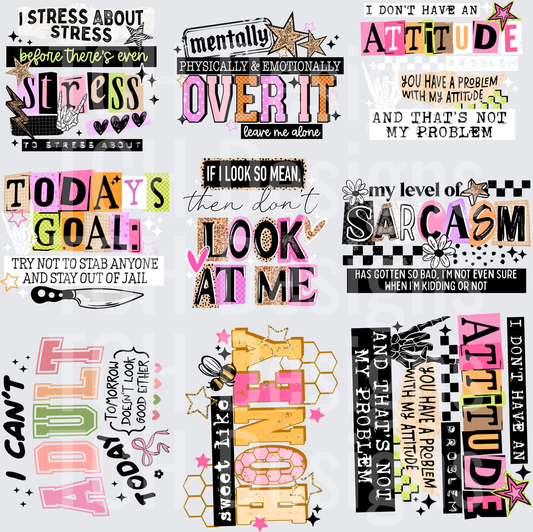 I STRESS ABOUT
STRESS
before there's even
STRESS
TO STRESS ABOUT
mentally
PHYSICALLY & EMOTIONALLY
OVER IT
leave me alone
I DON'T HAVE AN
ATTITUDE
PROBLEM
YOU HAVE A PROBLEM
WITH MY ATTITUDE
AND THAT'S NOT
MY PROBLEM
TODAYS
GOAL:
TRY NOT TO STAB ANYONE
AND STAY OUT OF JAIL
IF I LOOK SO MEAN,
then don't
LOOK
AT ME
my level of
SARCASM
HAS GOTTEN SO BAD, I'M NOT EVEN SURE
WHEN I'M KIDDING OR NOT
I CAN'T
ADULT
TODAY
TOMORROW
DOESN'T LOOK
GOOD EITHER
sweet like
HONEY
I DON'T HAVE AN
ATTITUDE
PROBLEM
YOU HAVE A PROBLEM
WITH MY ATTITUDE
AND THAT'S NOT
MY PROBLEM